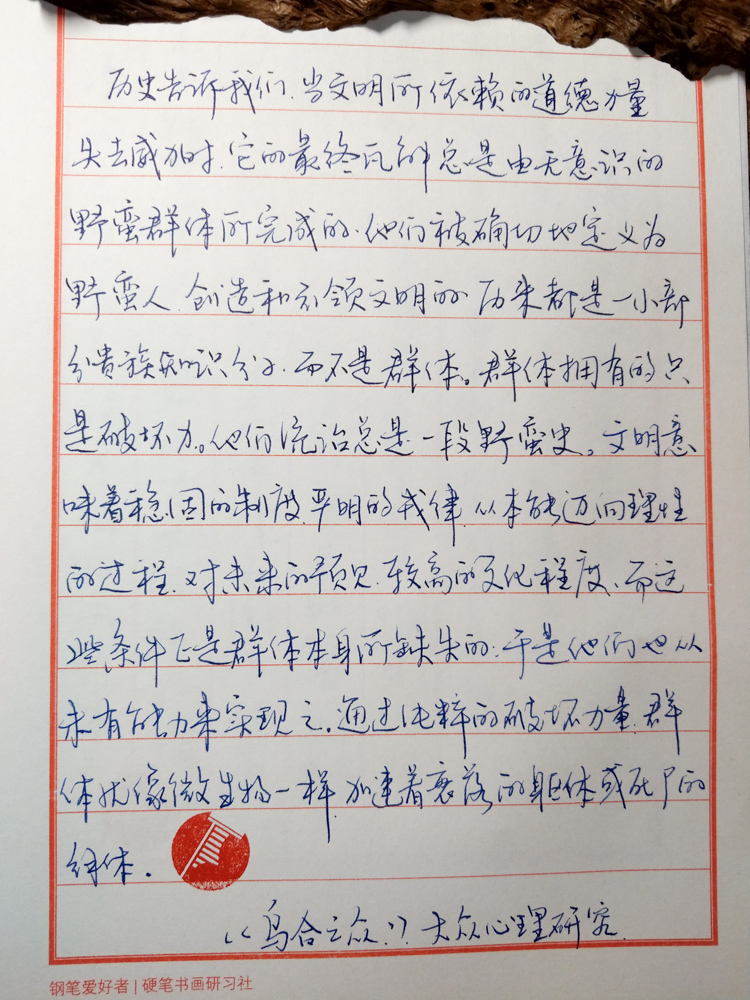 历史告诉我们,当文明所依赖的道德力量
失去威力时,它的最终瓦解总是由无意识的
野蛮群体所完成的,他们被确切地定义为
野蛮人,创造和引领文明的历来都是一小部
分贵族知识分子,而不是群体。群体拥有的只
是破坏力。他们统治总是一段野蛮史。文明意
味着稳固的制度,严明的戒律,从本能迈向理性
的过程,对未来的预见,较高的文化程度,而这
些条件正是群体本身所缺失的,于是他们也从
未有能力来实现之。通过纯粹的破坏力量,群
体犹像微生物一样,加速着衰落的躯体或死尸的
解体。
《乌合之众》大众心理研究
钢笔爱好者 | 硬笔书画研习社